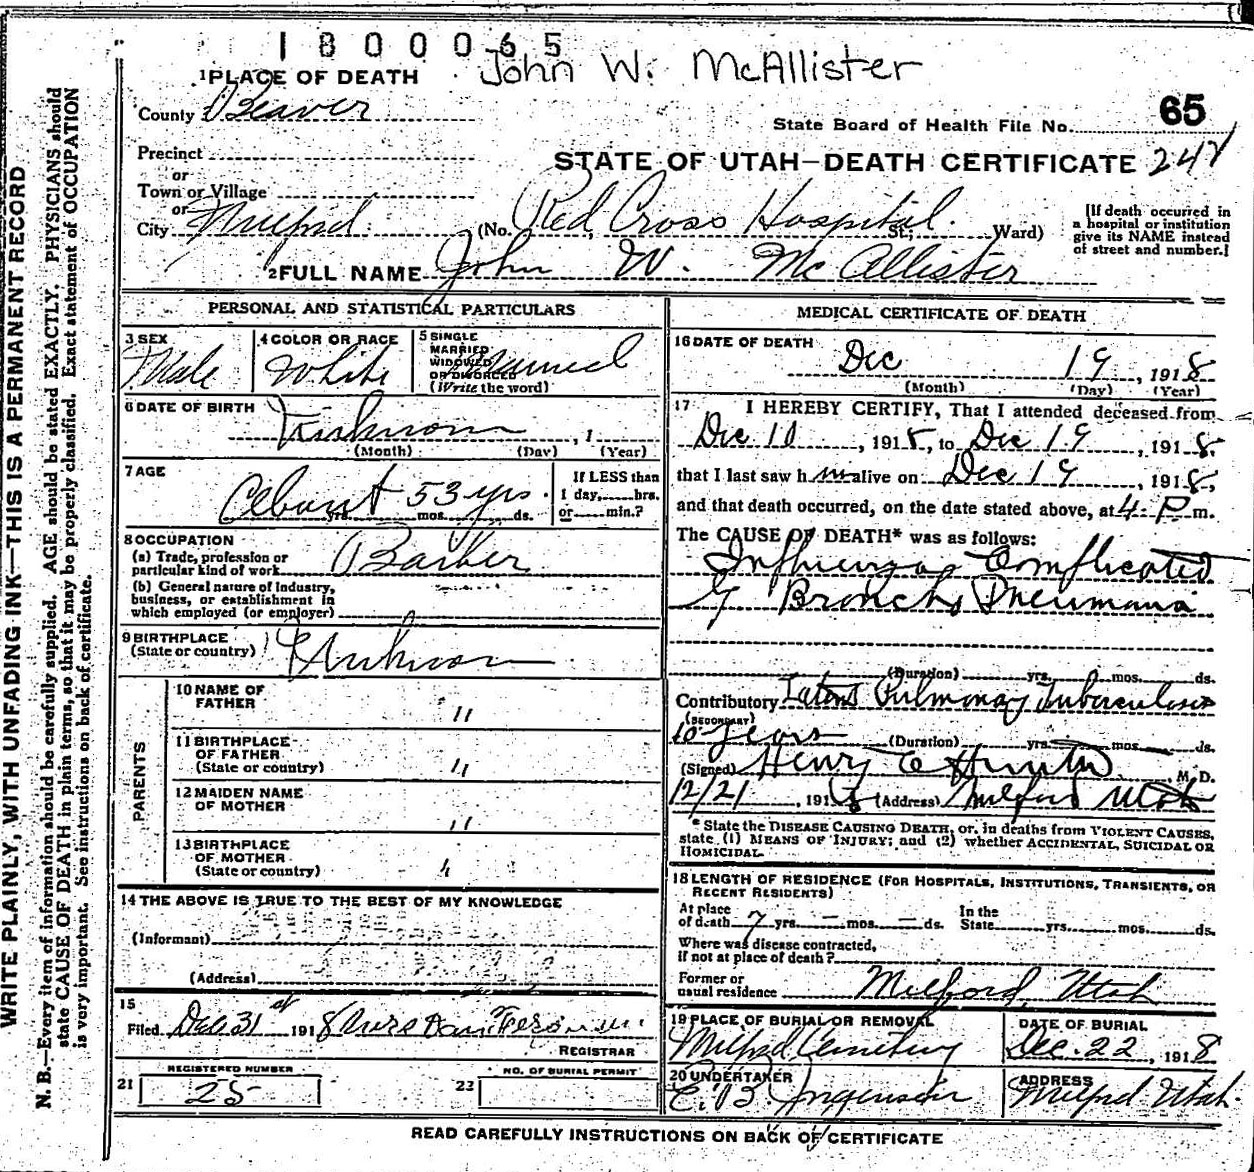 1800065
John W. McAllister
1 PLACE OF DEATH
County Beaver
65
State Board of Health File No.
Precinct
STATE OF UTAH—DEATH CERTIFICATE 247
or
Town or Village
or
City Milford (No. Red Cross Hospital St; Ward)
[If death occurred in
a hospital or institution
give its NAME instead
of street and number.]
2 FULL NAME John W. McAllister
PERSONAL AND STATISTICAL PARTICULARS
3 SEX
Male
4 COLOR OR RACE
White
5 SINGLE
MARRIED
WIDOWED
OR DIVORCED
(Write the word)
Married
6 DATE OF BIRTH Unknown , 1
(Month) (Day) (Year)
7 AGE
About 53 yrs.
yrs. mos. ds.
If LESS than
1 day, hrs.
or min.?
8 OCCUPATION
(a) Trade, profession or
particular kind of work Barber
(b) General nature of industry,
business, or establishment in
which employed (or employer)
9 BIRTHPLACE
(State or country) Unknown
PARENTS
10 NAME OF
FATHER "
11 BIRTHPLACE
OF FATHER
(State or country) "
12 MAIDEN NAME
OF MOTHER "
13 BIRTHPLACE
OF MOTHER
(State or country) "
14 THE ABOVE IS TRUE TO THE BEST OF MY KNOWLEDGE
(Informant)
(Address)
15
Filed Dec 31st 1918
REGISTRAR
REGISTERED NUMBER
21 25
NO. OF BURIAL PERMIT
22
MEDICAL CERTIFICATE OF DEATH
16 DATE OF DEATH
Dec 19 , 1918
(Month) (Day) (Year)
17 I HEREBY CERTIFY, That I attended deceased from
Dec 10 , 1918, to Dec 19 , 1918.
that I last saw him alive on Dec 19 , 1918,
and that death occurred, on the date stated above, at 4 P m.
The CAUSE OF DEATH* was as follows:
Influenza Complicated
by Broncho Pneumonia
(Duration) yrs. mos. ds.
Contributory Latent Pulmonary Tuberculosis
(SECONDARY)
10 years (Duration) yrs. mos. ds.
(Signed) Henry , M. D.
12/21 , 1918 (Address) Milford Utah
* State the DISEASE CAUSING DEATH, or, in deaths from VIOLENT CAUSES,
state (1) MEANS OF INJURY; and (2) whether ACCIDENTAL, SUICIDAL OR
HOMICIDAL.
18 LENGTH OF RESIDENCE (FOR HOSPITALS, INSTITUTIONS, TRANSIENTS, OR
RECENT RESIDENTS)
At place
of death 7 yrs. — mos. — ds.
In the
State yrs. mos. ds.
Where was disease contracted,
if not at place of death?
Former or
usual residence Milford, Utah
19 PLACE OF BURIAL OR REMOVAL
Milford Cemetery
DATE OF BURIAL
Dec. 22 , 1918
20 UNDERTAKER
C. B. Jorgensen
ADDRESS
Milford Utah.
READ CAREFULLY INSTRUCTIONS ON BACK OF CERTIFICATE
WRITE PLAINLY, WITH UNFADING INK—THIS IS A PERMANENT RECORD
N. B.—Every item of information should be carefully supplied. AGE should be stated EXACTLY. PHYSICIANS should
state CAUSE OF DEATH in plain terms, so that it may be properly classified. Exact statement of OCCUPATION
is very important. See instructions on back of certificate.